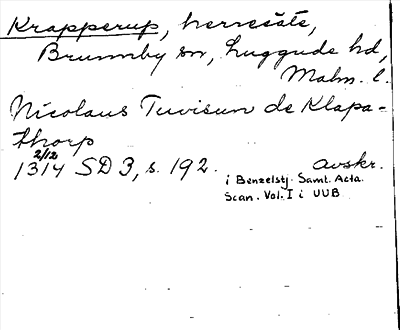 Krapperup, herresäte,
Brunnby sn, Luggude hd,
Malm. l.
Nicolaus Tuvisun de Klapa-
thorp
2/12
1314 SD 3, s. 192. avskr.
i Benzelstj. Saml. Acta.
Scan. Vol. I i UUB